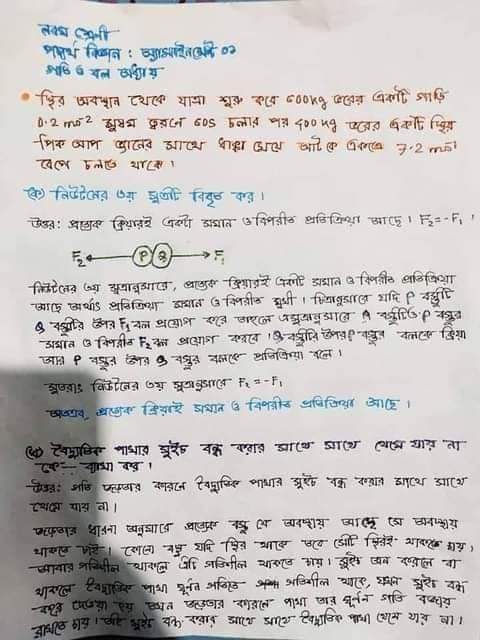 নবম শ্রেণী
পদার্থ বিজ্ঞান : অ্যাসাইনমেন্ট ০২
গতি ও বল অধ্যায়
স্থির অবস্থান থেকে যাত্রা শুরু করে 600kg ভরের একটি গাড়ি
0.2 ms⁻² সুষম ত্বরনে 60s চলার পর 400kg ভরের একটি স্থির
পিক আপ ভ্যানের সাথে ধাক্কা খেয়ে আটকে একত্রে 7.2 ms⁻¹
বেগে চলতে থাকে।
(ক) নিউটনের ৩য় সূত্রটি বিবৃত কর।
উত্তর: প্রত্যেক ক্রিয়ারই একটা সমান ও বিপরীত প্রতিক্রিয়া আছে। F₂=-F₁।
F₂ P Q F₁
নিউটনের ৩য় সূত্রানুসারে, প্রত্যেক ক্রিয়ারই একটি সমান ও বিপরীত প্রতিক্রিয়া
আছে অর্থাৎ প্রতিক্রিয়া সমান ও বিপরীত মুখী। চিত্রানুসারে যদি P বস্তুটি
Q বস্তুটির উপর F₁ বল প্রয়োগ করে তাহলে এসূত্রানুসারে Q বস্তুটিও P বস্তুর
সমান ও বিপরীত F₂ বল প্রয়োগ করবে। Q বস্তুটির উপর P বস্তুর বলকে ক্রিয়া
আর P বস্তুর উপর Q বস্তুর বলকে প্রতিক্রিয়া বলে।
সুতরাং নিউটনের ৩য় সূত্রানুসারে F₂ = -F₁
অতএব, প্রত্যেক ক্রিয়াই সমান ও বিপরীত প্রতিক্রিয়া আছে।
(খ) বৈদ্যুতিক পাখার সুইচ বন্ধ করার সাথে সাথে থেমে যায় না
কে— ব্যাখা কর।
উত্তর: গতি জড়তার কারনে বৈদ্যুতিক পাখার সুইচ বন্ধ করার সাথে সাথে
থেমে যায় না।
জড়তার ধারনা অনুসারে প্রত্যেক বস্তু যে অবস্থায় আছে সে অবস্থায়
থাকতে চায়। কোনো বস্তু যদি স্থির থাকে তবে সেটি স্থিরই থাকতে চায়।
আবার গতিশীল থাকলে এটি গতিশীল থাকতে চায়। সুইচ অন করলে বা
থাকলে বৈদ্যুতিক পাখা ঘূর্নন গতিতে গতিশীল থাকে, যখন সুইচ বন্ধ
করে দেওয়া হয় তখন জড়তার কারনে পাখা তার ঘূর্নন গতি বজায়
রাখতে চায়। তাই সুইচ বন্ধ করার সাথে সাথে বৈদ্যুতিক পাখা থেমে যায় না।